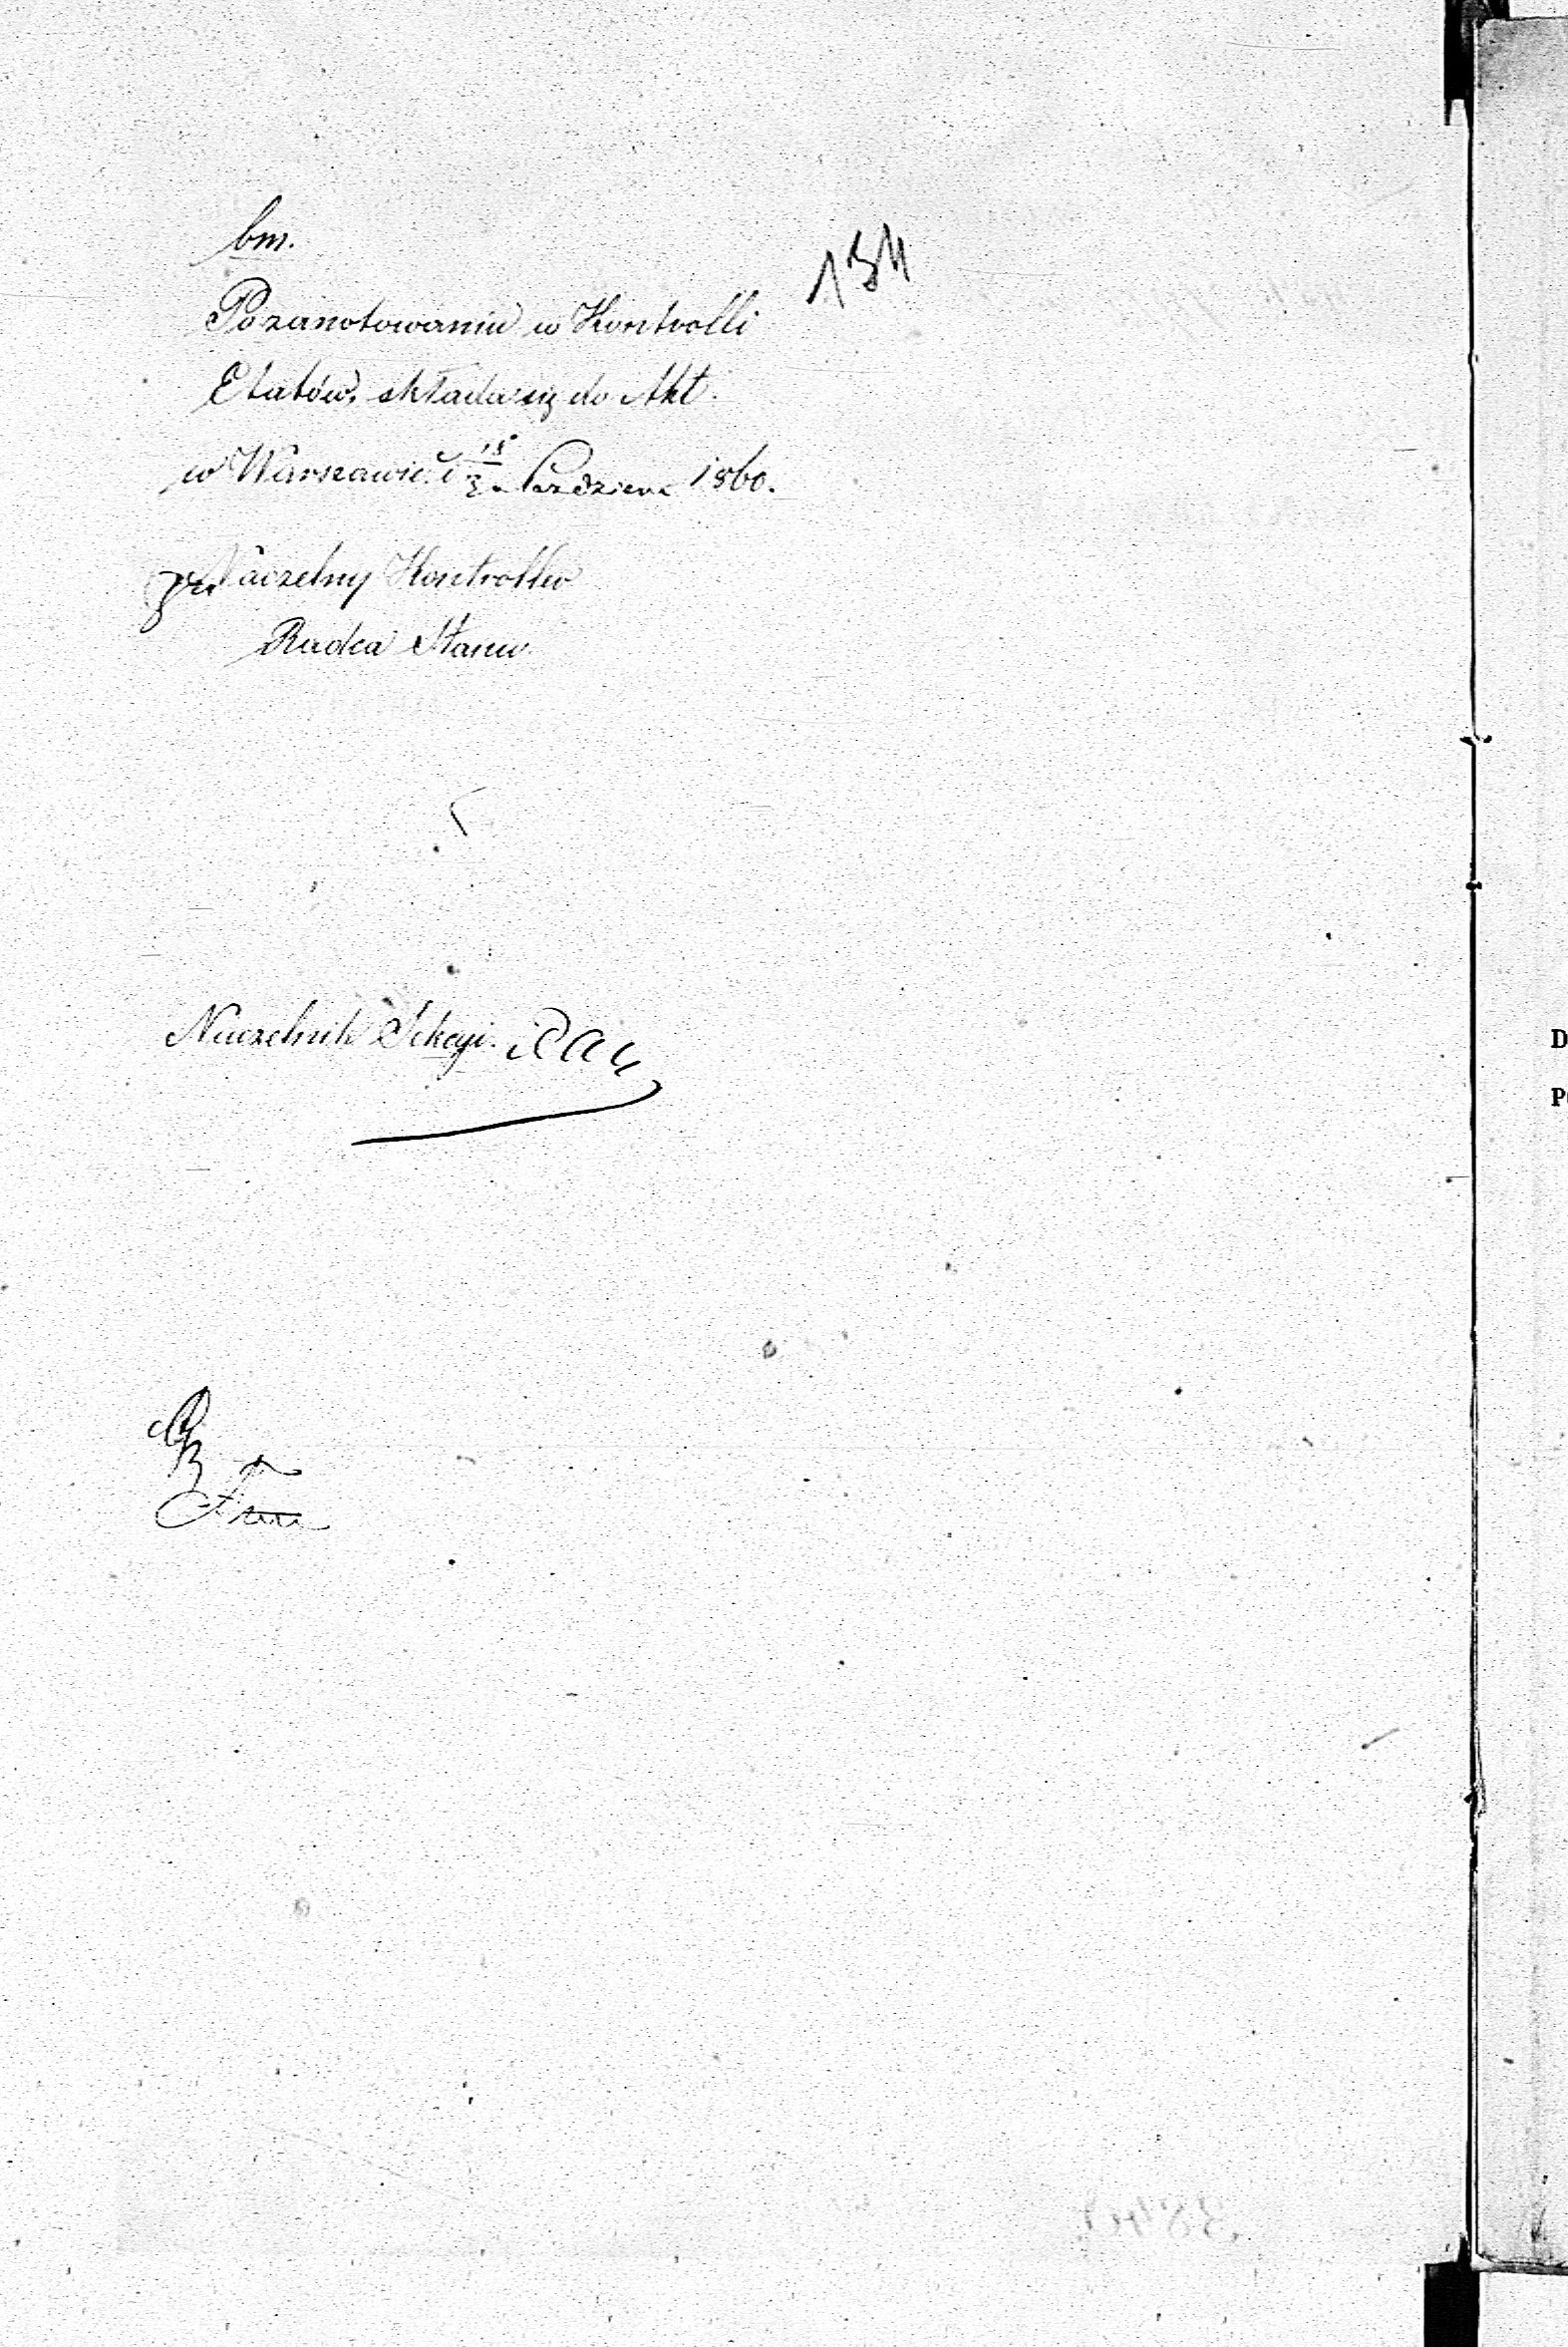 bm.
134
Po zanotowaniu w Kontrolli
Etatów, składa się do Akt.
w Warszawie d 15/3 Październ 1860.
Naczelny Kontroller
Radca Stanu
Naczelnik Sekcyi.
D
P